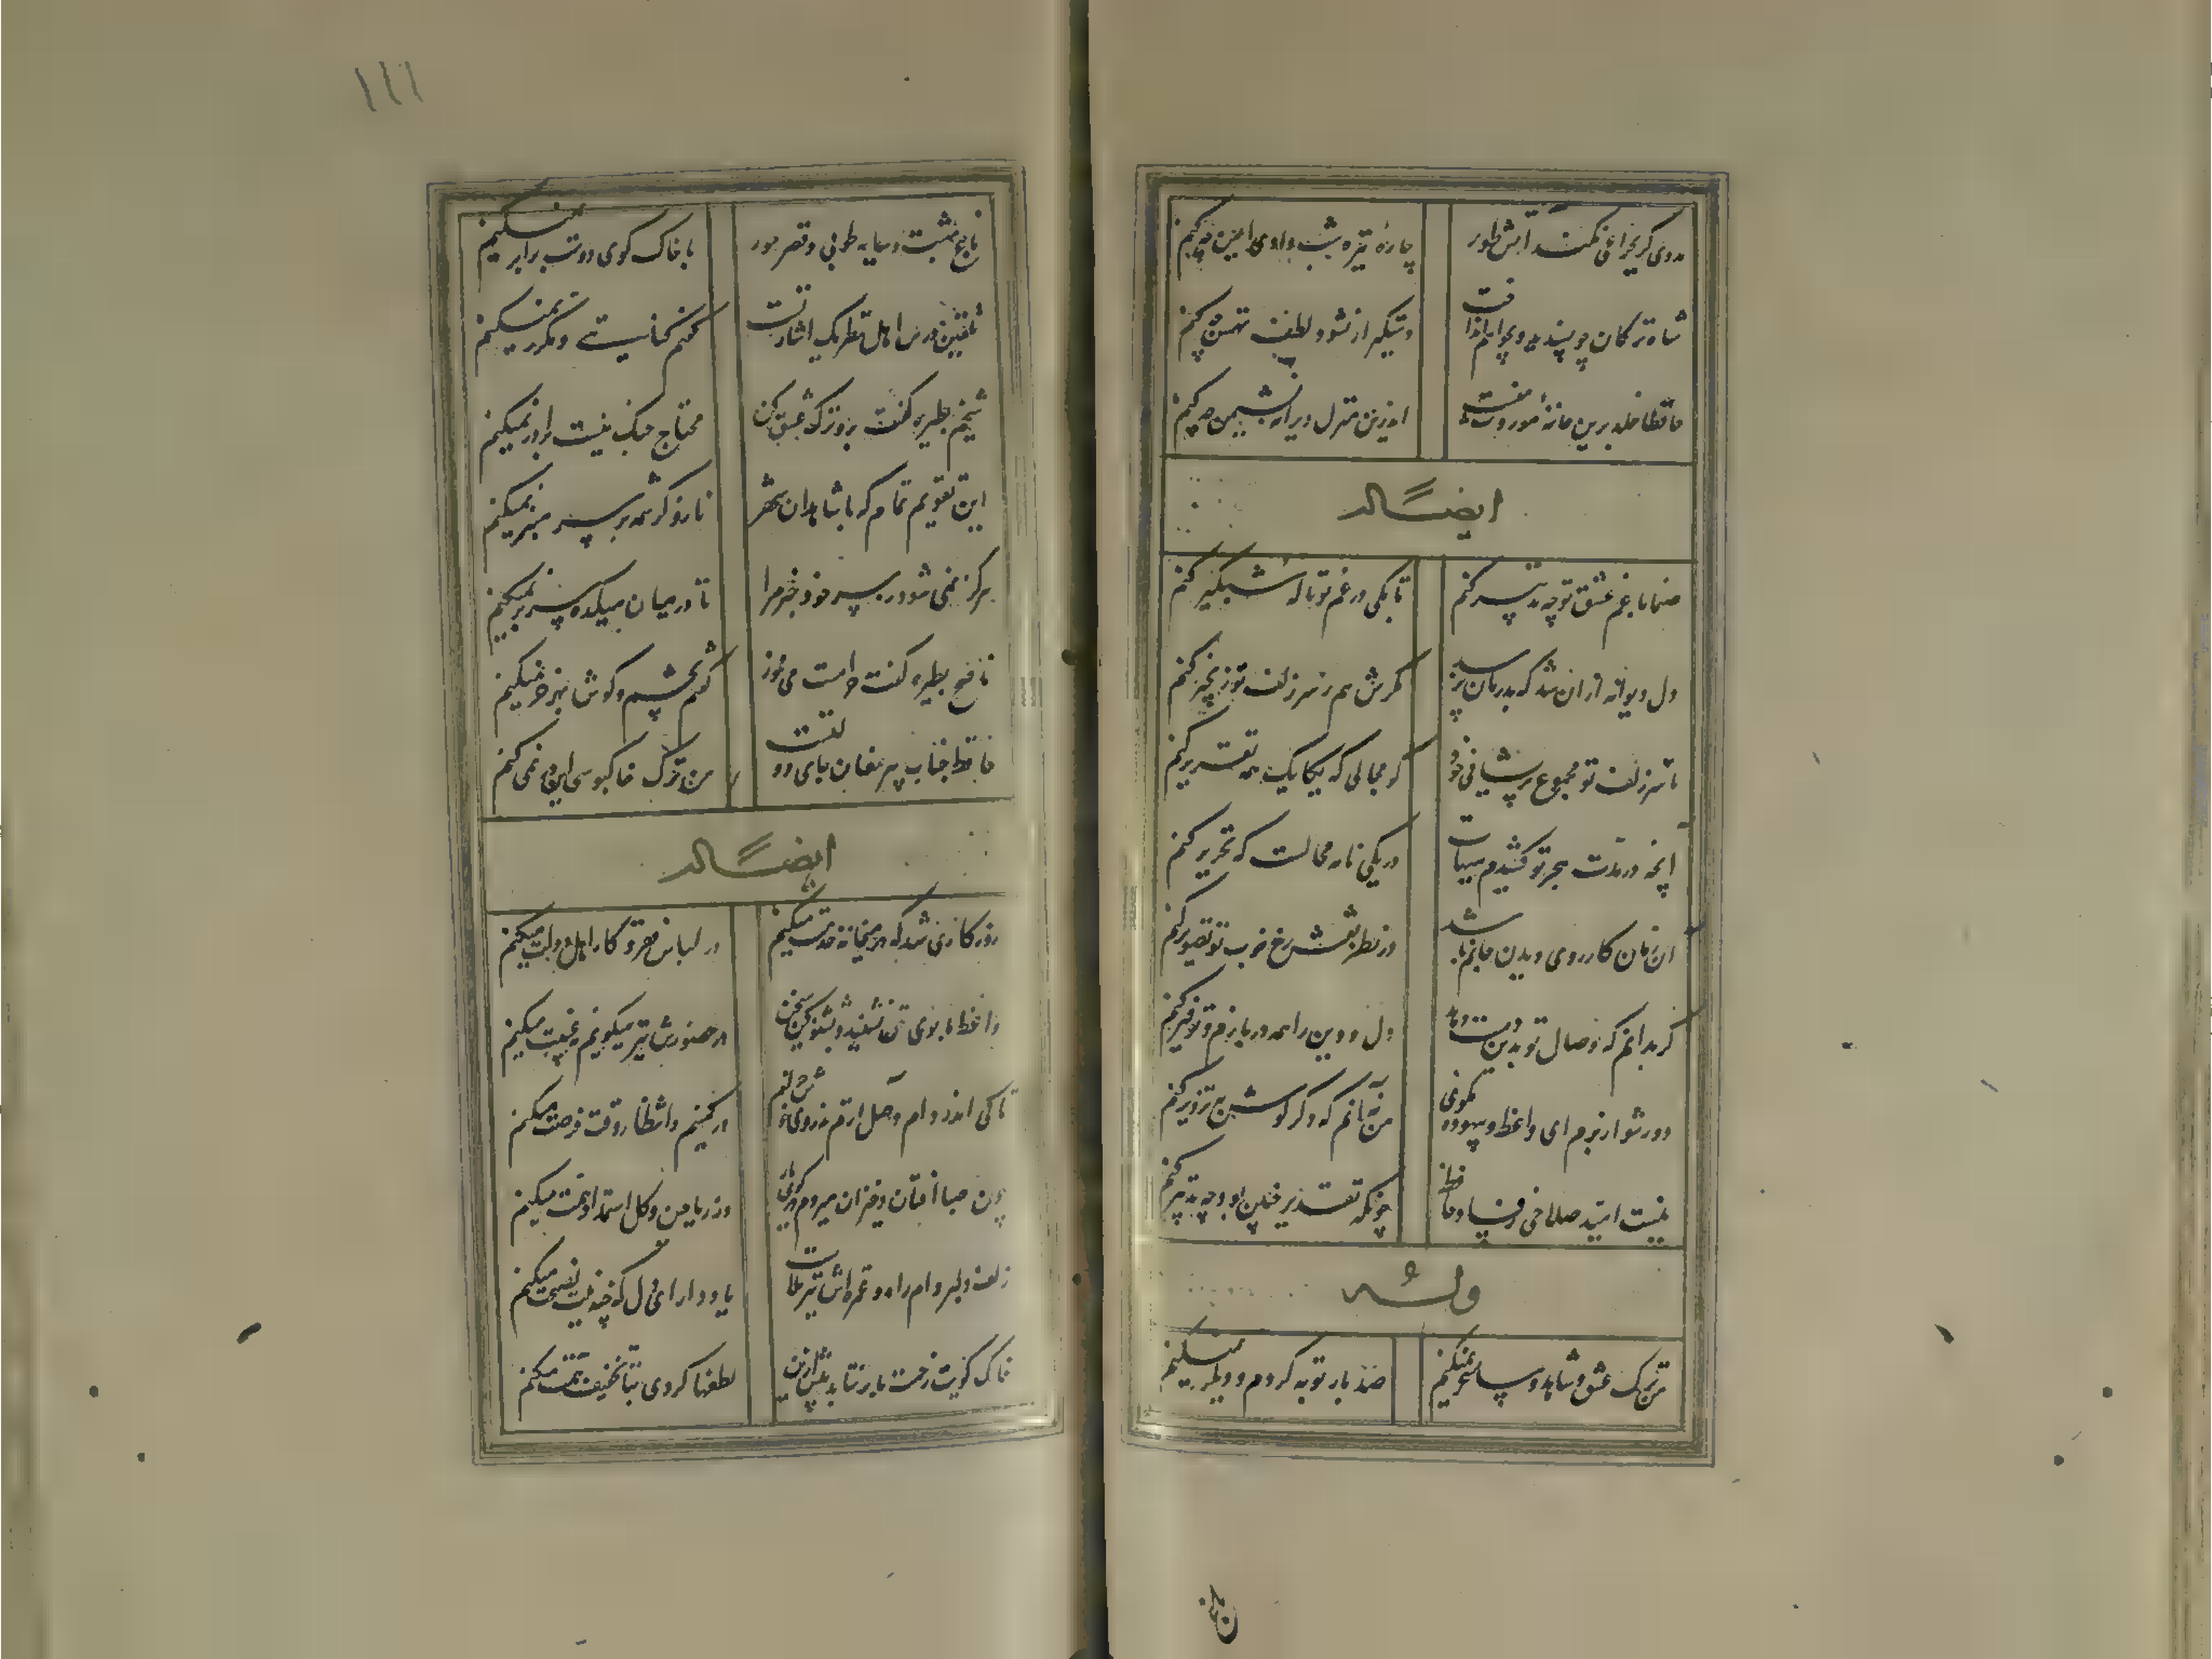 مددی گر بچراغی نکند آتش طور
چارهٔ تیره شب وادی ایمن چه کنم
شاه ترکان چو پسندید و بچاهم انداخت
دستگیر ار نشود لطف تهمتن چه کنم
حافظا خلد برین خانهٔ موروث منست
اندرین منزل ویرانه نشیمن چه کنم
ایضاً له
صنما با غم عشق تو چه تدبیر کنم
تا بکی در غم تو ناله شبگیر کنم
دل دیوانه از ان شد که بدرمان برسد
مگرش هم ز سر زلف تو زنجیر کنم
با سر زلف تو مجموع پریشانی خود
کو مجالی که یکایک همه تقریر کنم
آنچه در مدت هجر تو کشیدم هیهات
در یکی نامه محالست که تحریر کنم
ان زمان کارزوی دیدن جانم باشد
در نظر نقش رخ خوب تو تصویر کنم
گر بدانم که وصال تو بدین دست دهد
دل و دین را همه در بازم و توفیر کنم
دور شو از برم ای واعظ و بیهوده مگوی
من نه آنم که دگر گوش به تزویر کنم
نیست امید صلاحی ز فساد حافظ
چونکه تقدیر چنین بود چه تدبیر کنم
وله
من ترک عشق و شاهد و ساغر نمیکنم
صد بار توبه کردم و دیگر نمیکنم
باغ بهشت و سایه طوبی و قصر حور
با خاک کوی دوست برابر نمیکنم
تلقین درس اهل نظر یک اشارتست
گفتم کنایتی و مکرر نمیکنم
شیخم بطیره گفت برو ترک عشق کن
محتاج جنگ نیست برادر نمیکنم
این تقویم تمام که با شاهدان شهر
ناز و کرشمه بر سر منبر نمیکنم
هرگز نمی شود ز سر خود خبر مرا
تا در میان میکده سر بر نمیکنم
ناصح بطیره گفت حرامست می مخور
گفتم بچشم و گوش بهر خر نمیکنم
حافظ جناب پیر مغان جای دولتست
من ترک خاکبوسی این در نمی کنم
ایضاً له
روزگاری شد که در میخانه خدمت میکنم
در لباس فقر کار اهل دولت میکنم
واعظ ما بوی حق نشنید بشنو کین سخن
در حضورش نیز میگویم نه غیبت میکنم
تا کی اندر دام وصل آرم تذروی خوش خرام
در کمینم و انتظار وقت فرصت میکنم
چون صبا افتان و خیزان میروم تا کوی
وز ریاحین و گل استمداد همت میکنم
زلف دلبر دام راه و غمزه اش تیر بلاست
یاد دار ای دل که چندینت نصیحت میکنم
خاک کویت زحمت ما بر نتابد بیش ازین
لطفها کردی بتا تخفیف زحمت میکنم